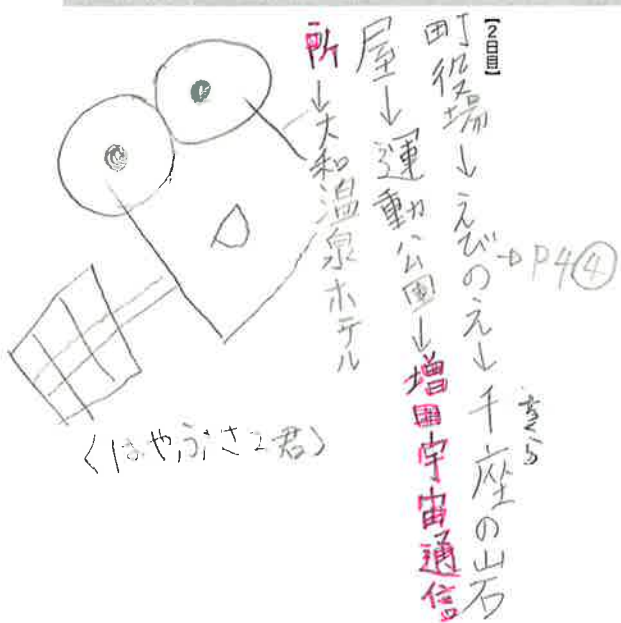 【2日目】
町役場→えびのえ→千座の岩
屋→運動公園→増田宇宙通信
所→大和温泉ホテル
きくら
→P4④
〈はやぶさ2君〉